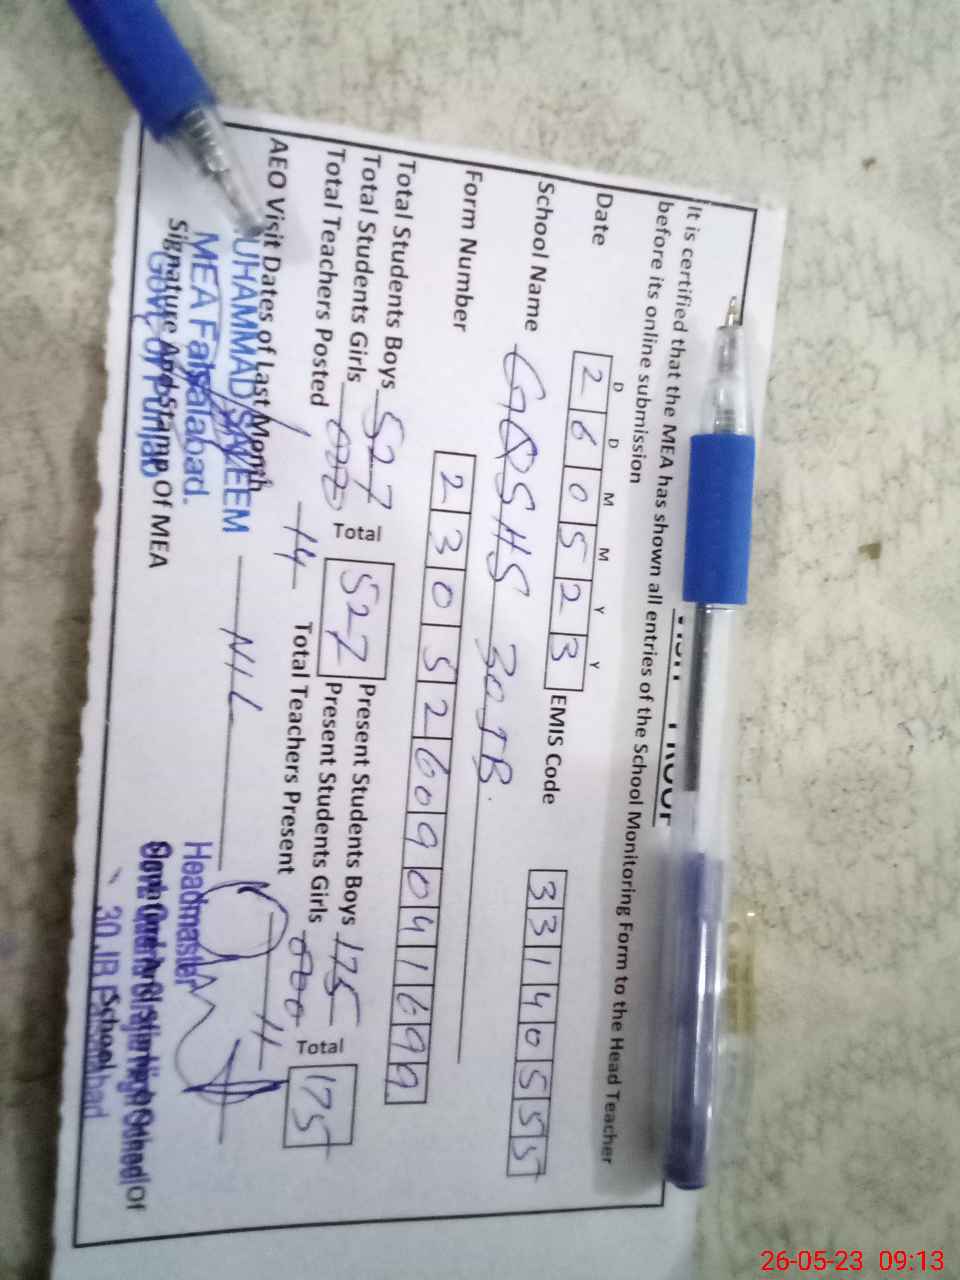 It is certified that the MEA has shown all entries of the School Monitoring Form to the Head Teacher
before its online submission
D D M M Y Y
Date 2 6 0 5 2 3 EMIS Code 3 3 1 4 0 5 5 5
School Name GQSHS 30JB.
Form Number 2 3 0 5 2 6 0 9 0 4 1 6 9 9
Total Students Boys 527 Total 527 Present Students Boys 175 Total 175
Total Students Girls 000 Present Students Girls 000
Total Teachers Posted 14 Total Teachers Present 14
AEO Visit Dates of Last Month NIL
UHAMMAD SALEEM
MEA Faisalabad.
Govt. of Punjab
Signature And Stamp Of MEA
Headmaster
School
26-05-23 09:13